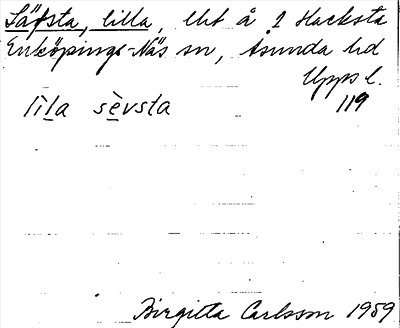 Säfsta, lilla, lht å 2 Hacksta
Enköpings-Näs sn, Åsunda hd
Upps l.
lìla sèvsta 119
Birgitta Carlsson 1959